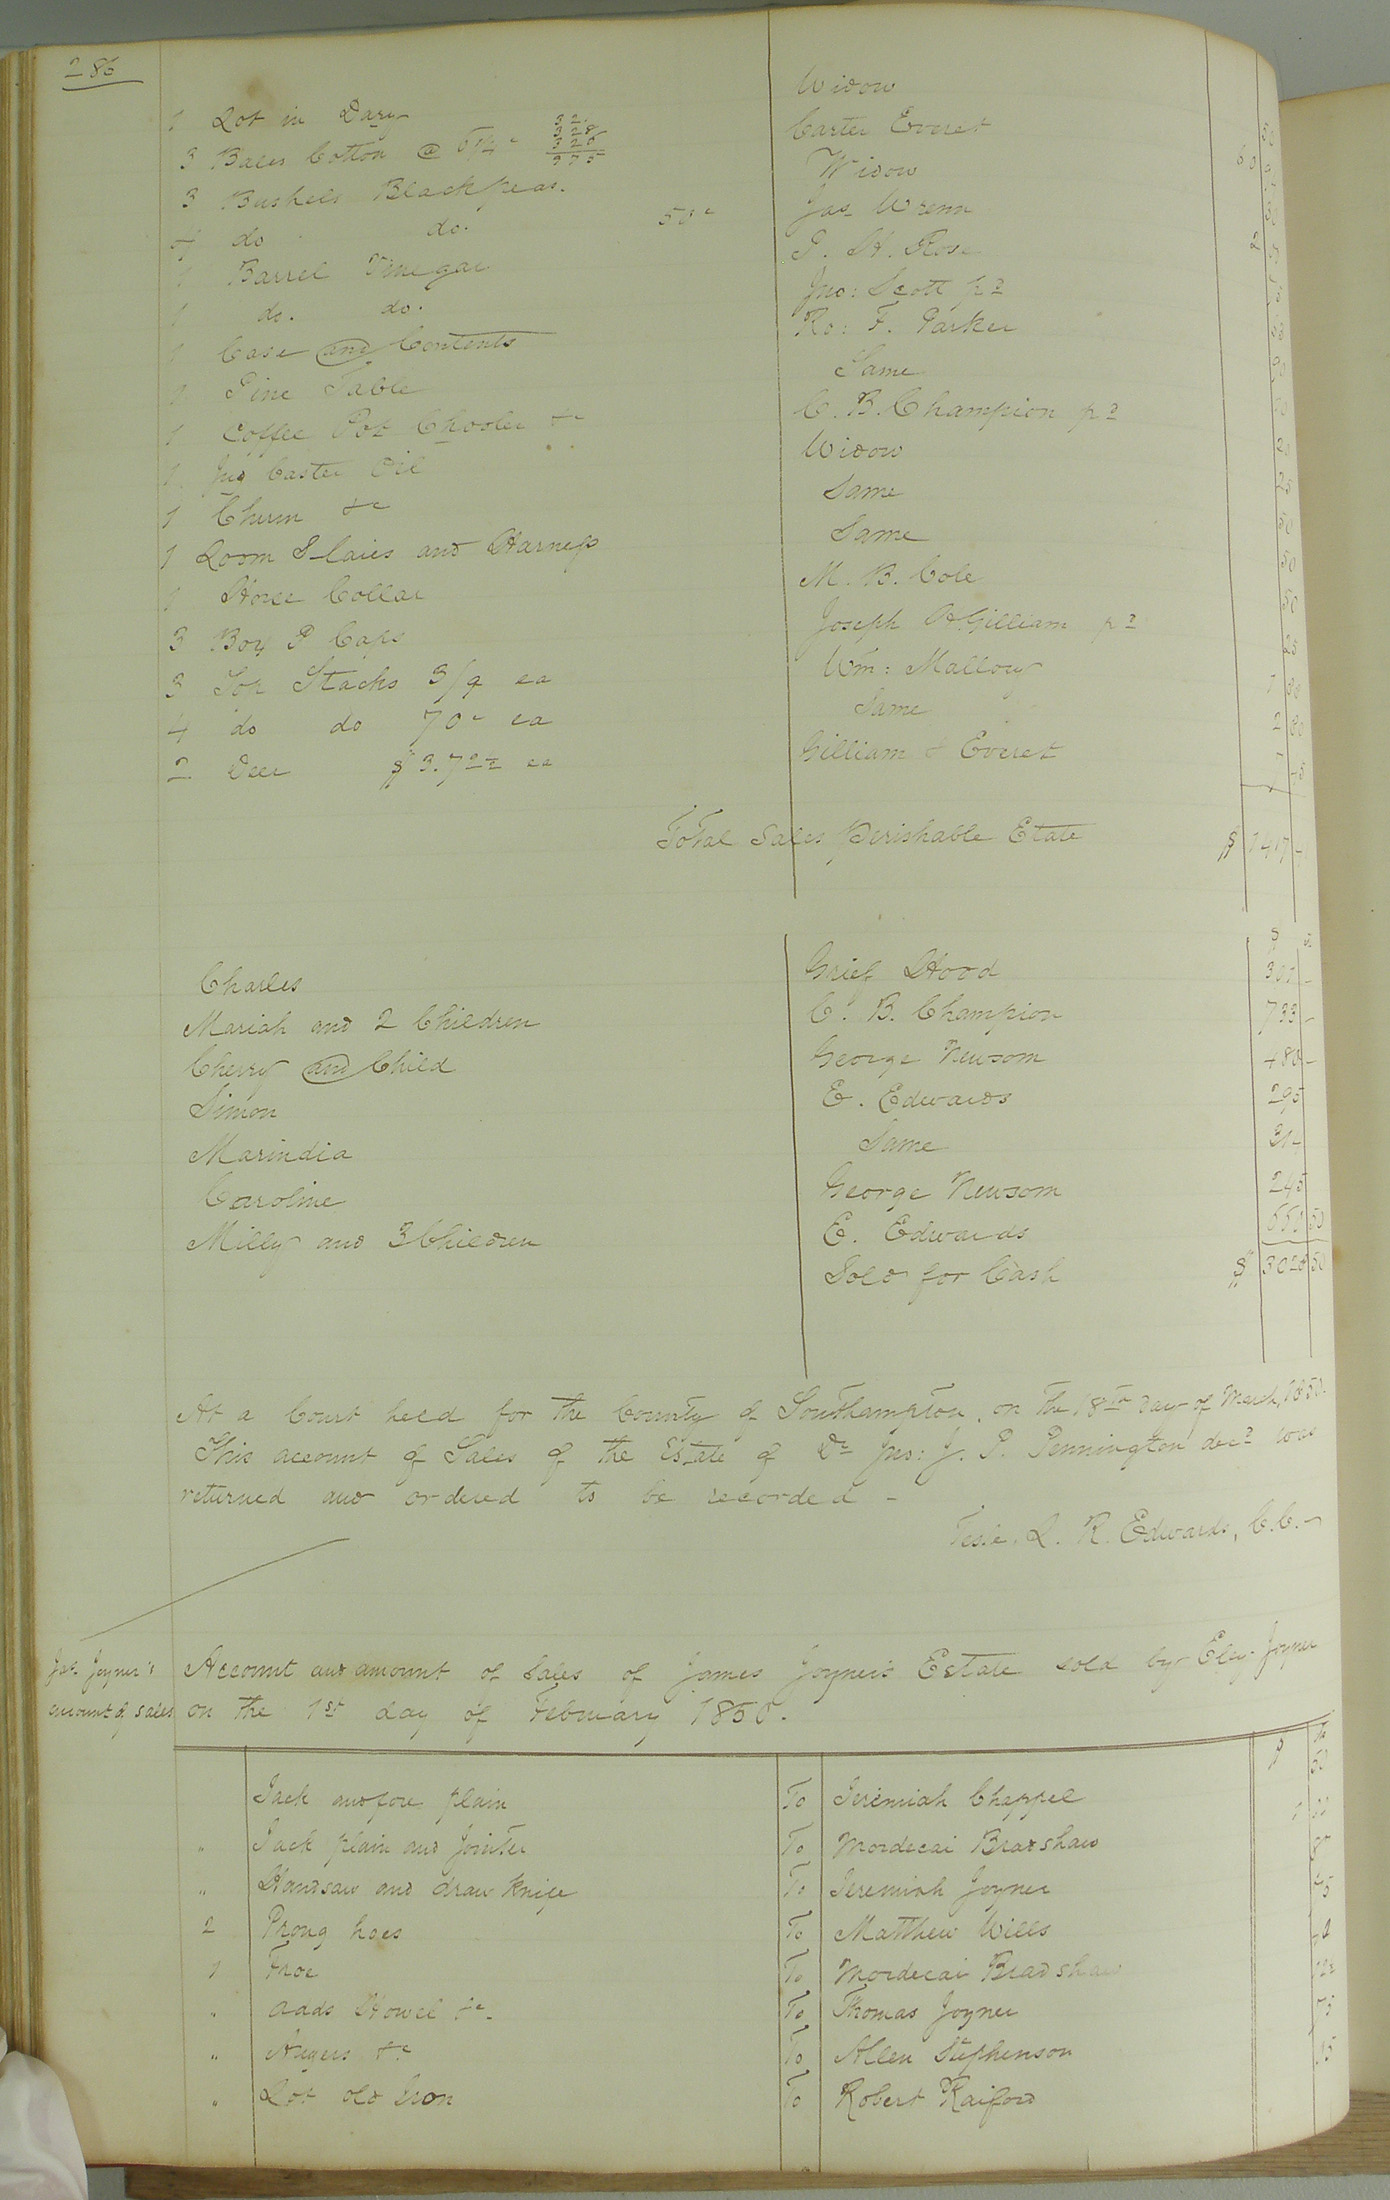 286
1 Lot in Dary Widow 50
3 Bales Cotton @ 6 1/4 c 321 328 326 975 Carter Everet 60
3 Bushels Blackpeas. Widow
4 do do. 50c Jas Wrenn 2
1 Barrel Vinegar P. H. Rose
1 do. do. Jno: Scott pd
1 Case and Contents Ro: F. Parker
1 Pine Table Same
1 Coffee Pot Chooler &c C. B. Champion pd
1 Jug Caster Oil Widow 25
1 Churn &c Same 25
1 Loom Slaies and Harness Same 50
1 Horse Collar M. B. Cole 50
3 Boxs & Caps Joseph H Gilliam pd 25
3 Top Stacks 3/9 ea Wm: Mallory 1 88
4 do do 70c ea Same 2 80
2 Deer $3.72½ ea Gilliam & Everet 7 45
Total Sales Perishable Etate $ 1417
$ c
Charles Grief Hood 391 -
Mariah and 2 Children C. B. Champion 733 -
Cherry and Child George Newsom 480 -
Simon E. Edwards 295
Marindia Same 31-
Caroline George Newsom 245
Milly and 3 Children E. Edwards 550 50
Sold for Cash $ 3025 50
At a Court held for the County of Southampton, on the 18th Day of March, 1850.
This account of Sales of the Estate of Dr Jno: J. P. Pennington decd was
returned and ordered to be recorded -
Teste. L. R. Edwards, C.C. -
Jas. Joyner's
amount of sales
Account and amount of Sales of James Joyner's Estate sold by Eley Joyner
on the 1st day of February 1850.
Jack and fore plain To Jeremiah Chappel 50
" Jack plain and Jointer To Mordecai Bradshaw 1
" Handsaw and draw knife To Jeremiah Joyner
2 Prong hoes To Matthew Wills 45
1 Froe To Mordecai Bradshaw
" Adds Howel &c. To Thomas Joyner 12½
" Augers &c To Allen Stephenson 75
" Lot old Iron To Robert Raiford